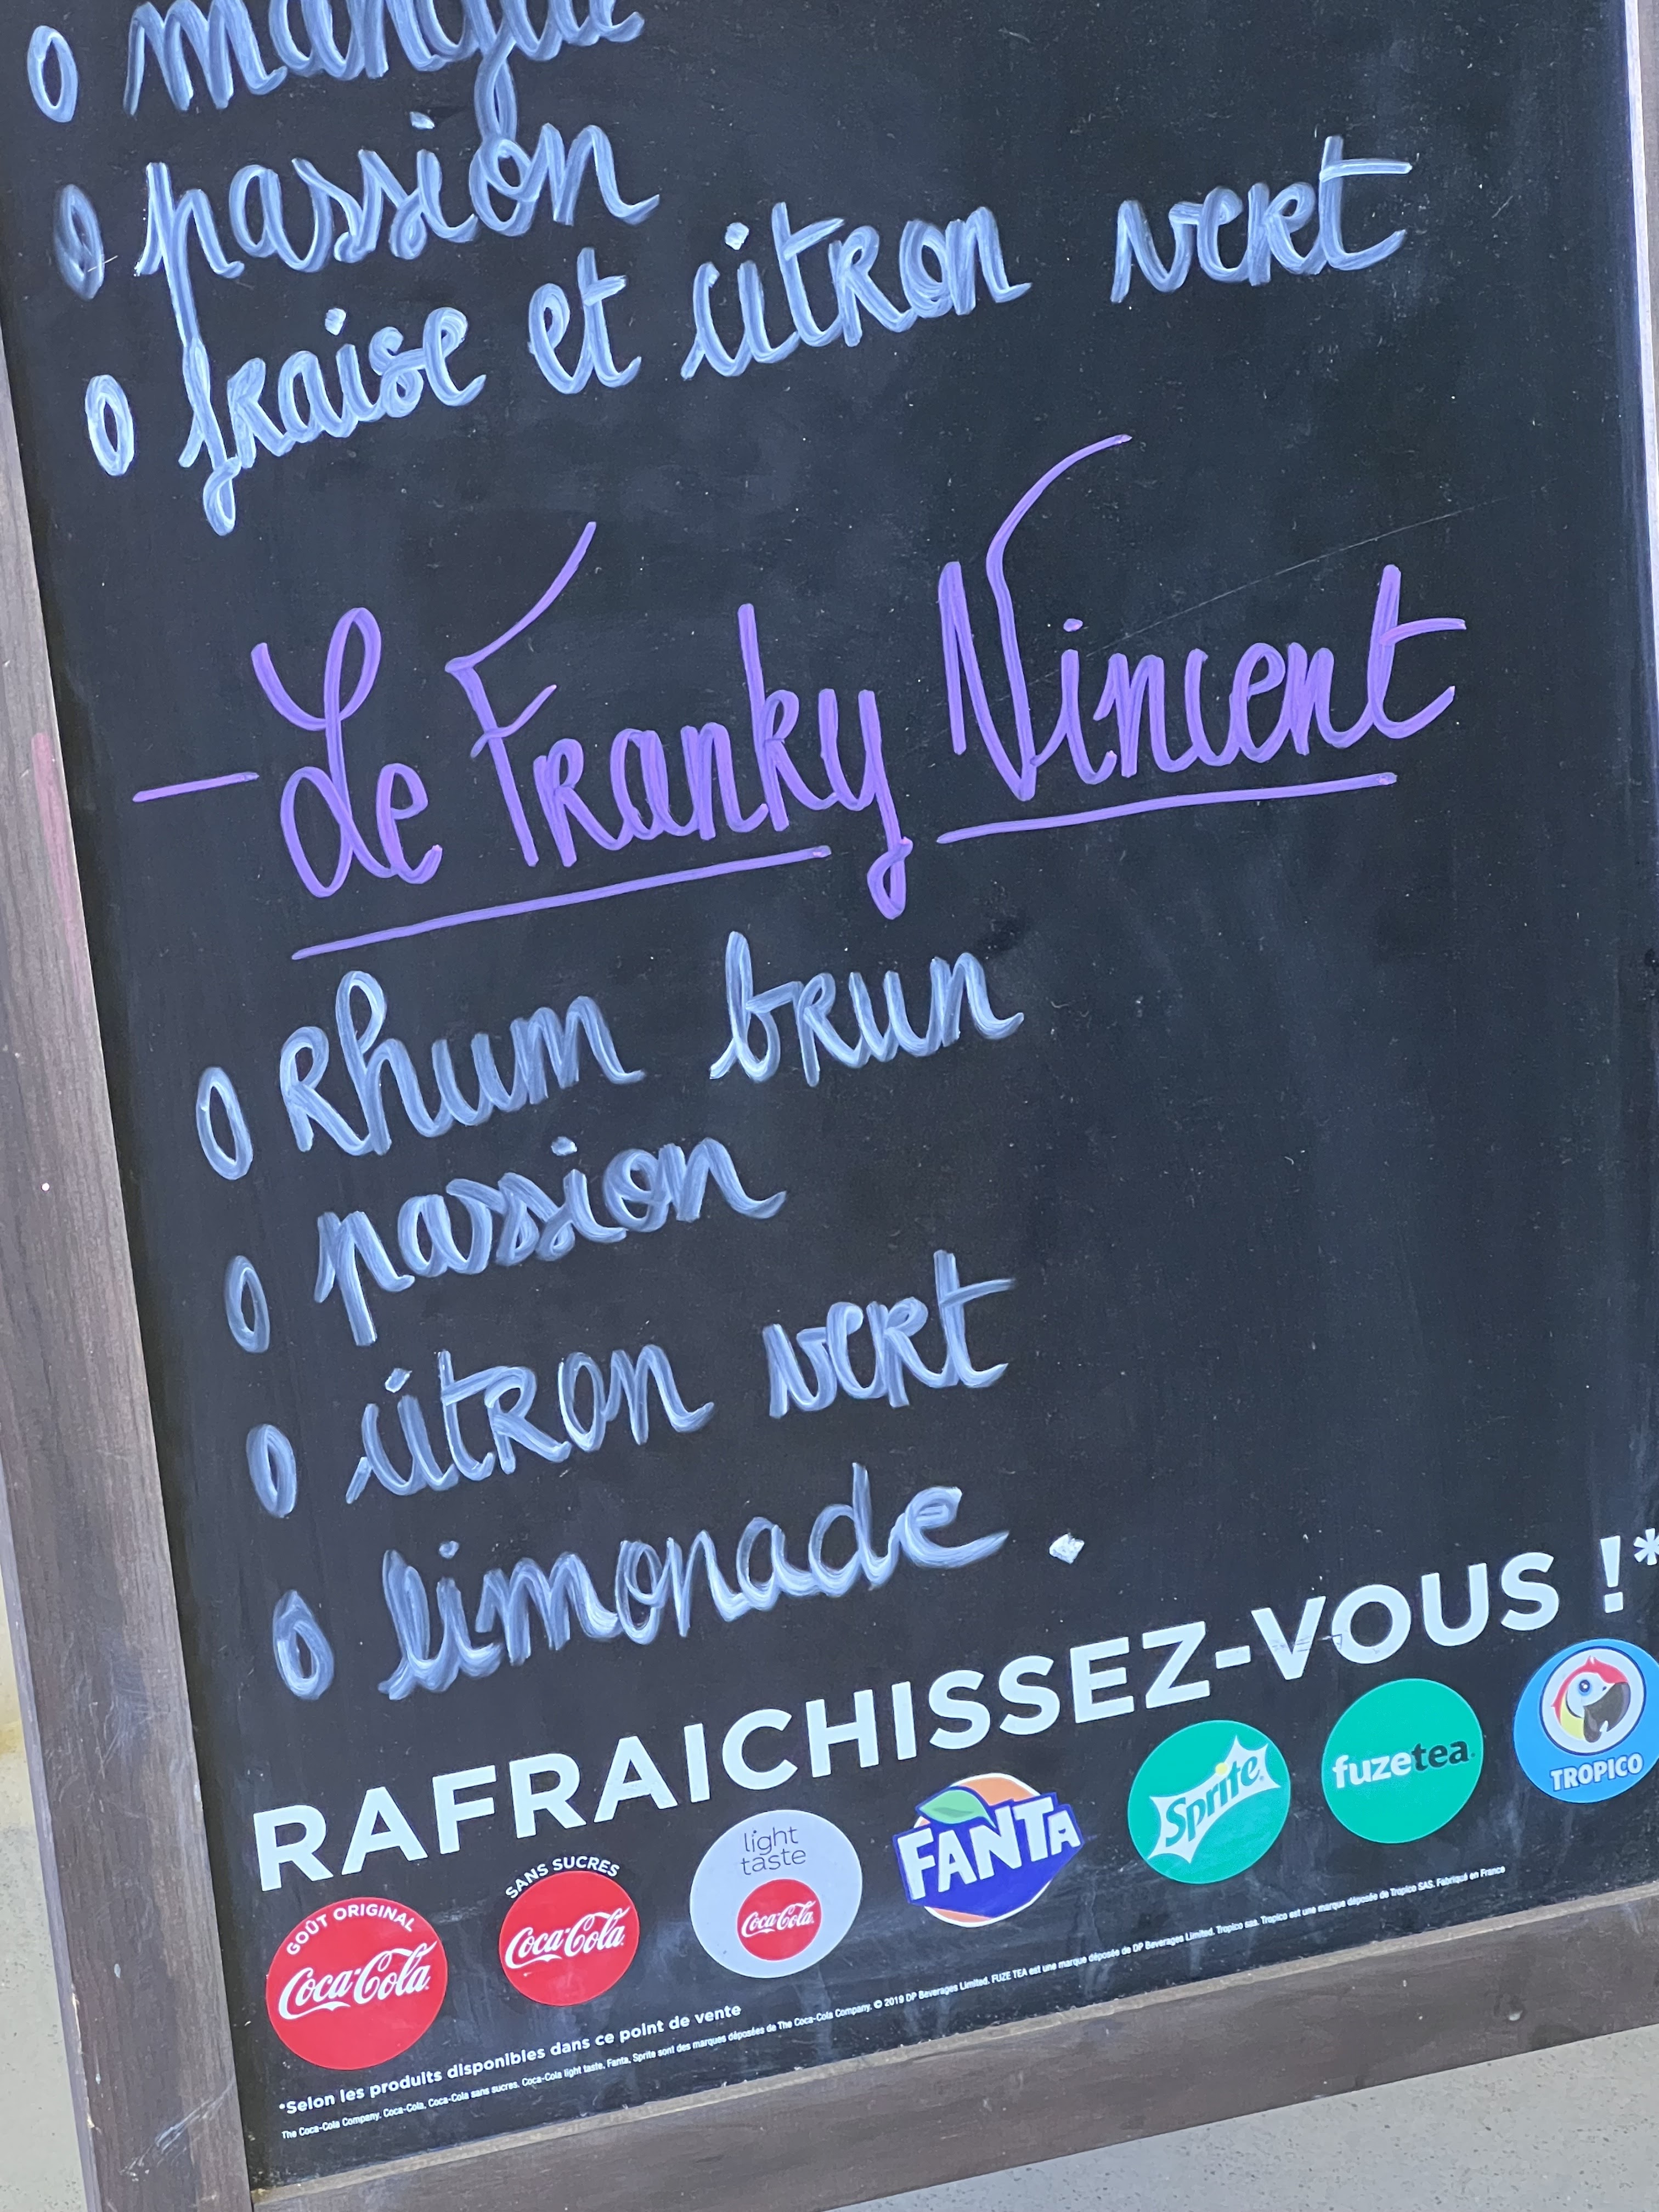 o mangue
o passion
o fraise et citron vert
- Le Franky Vincent
o Rhum brun
o passion
o citron vert
o limonade.
RAFRAICHISSEZ-VOUS !*
GOÛT ORIGINAL
Coca-Cola
SANS SUCRES
Coca-Cola
light
taste
Coca-Cola
FANTA
Sprite
fuzetea
TROPICO
*Selon les produits disponibles dans ce point de vente
The Coca-Cola Company. Coca-Cola, Coca-Cola sans sucres, Coca-Cola light taste, Fanta, Sprite sont des marques déposées de The Coca-Cola Company. © 2019 DP Beverages Limited. FUZE TEA est une marque déposée de DP Beverages Limited. Tropico sas. Tropico est une marque déposée de Tropico SAS. Fabriqué en France